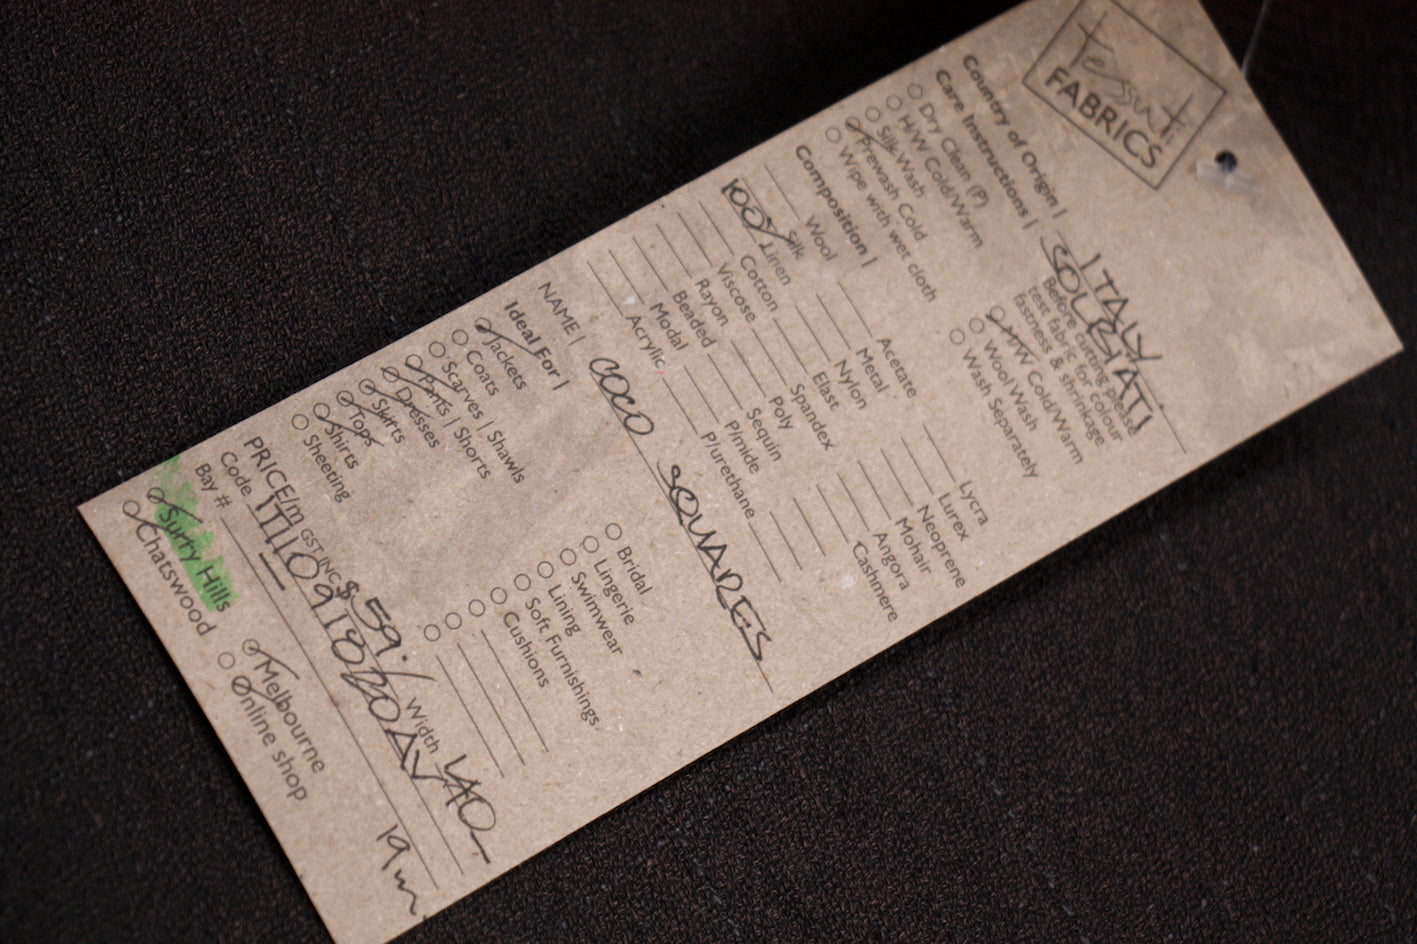 tessuti
FABRICS
Country of Origin | ITALY
Care Instructions |
Dry Clean (P)
H/W Cold/Warm
Silk Wash
Prewash Cold
Wipe with wet cloth
Before cutting please
test fabric for colour
fastness & shrinkage
H/W Cold/Warm
Wool Wash
Wash Separately
Composition |
Wool
Silk
100% Linen
Cotton
Viscose
Rayon
Beaded
Modal
Acrylic
Acetate
Metal
Nylon
Elast
Spandex
Poly
Sequin
P/mide
P/urethane
Lycra
Lurex
Neoprene
Mohair
Angora
Cashmere
NAME | COCO SQUARES
Ideal For |
Jackets
Coats
Scarves | Shawls
Pants | Shorts
Dresses
Skirts
Tops
Shirts
Sheeting
Bridal
Lingerie
Swimwear
Lining
Soft Furnishings
Cushions
PRICE/m GST INC $59.
Width 140
Code
Bay #
Surry Hills
Chatswood
Melbourne
Online shop
19m